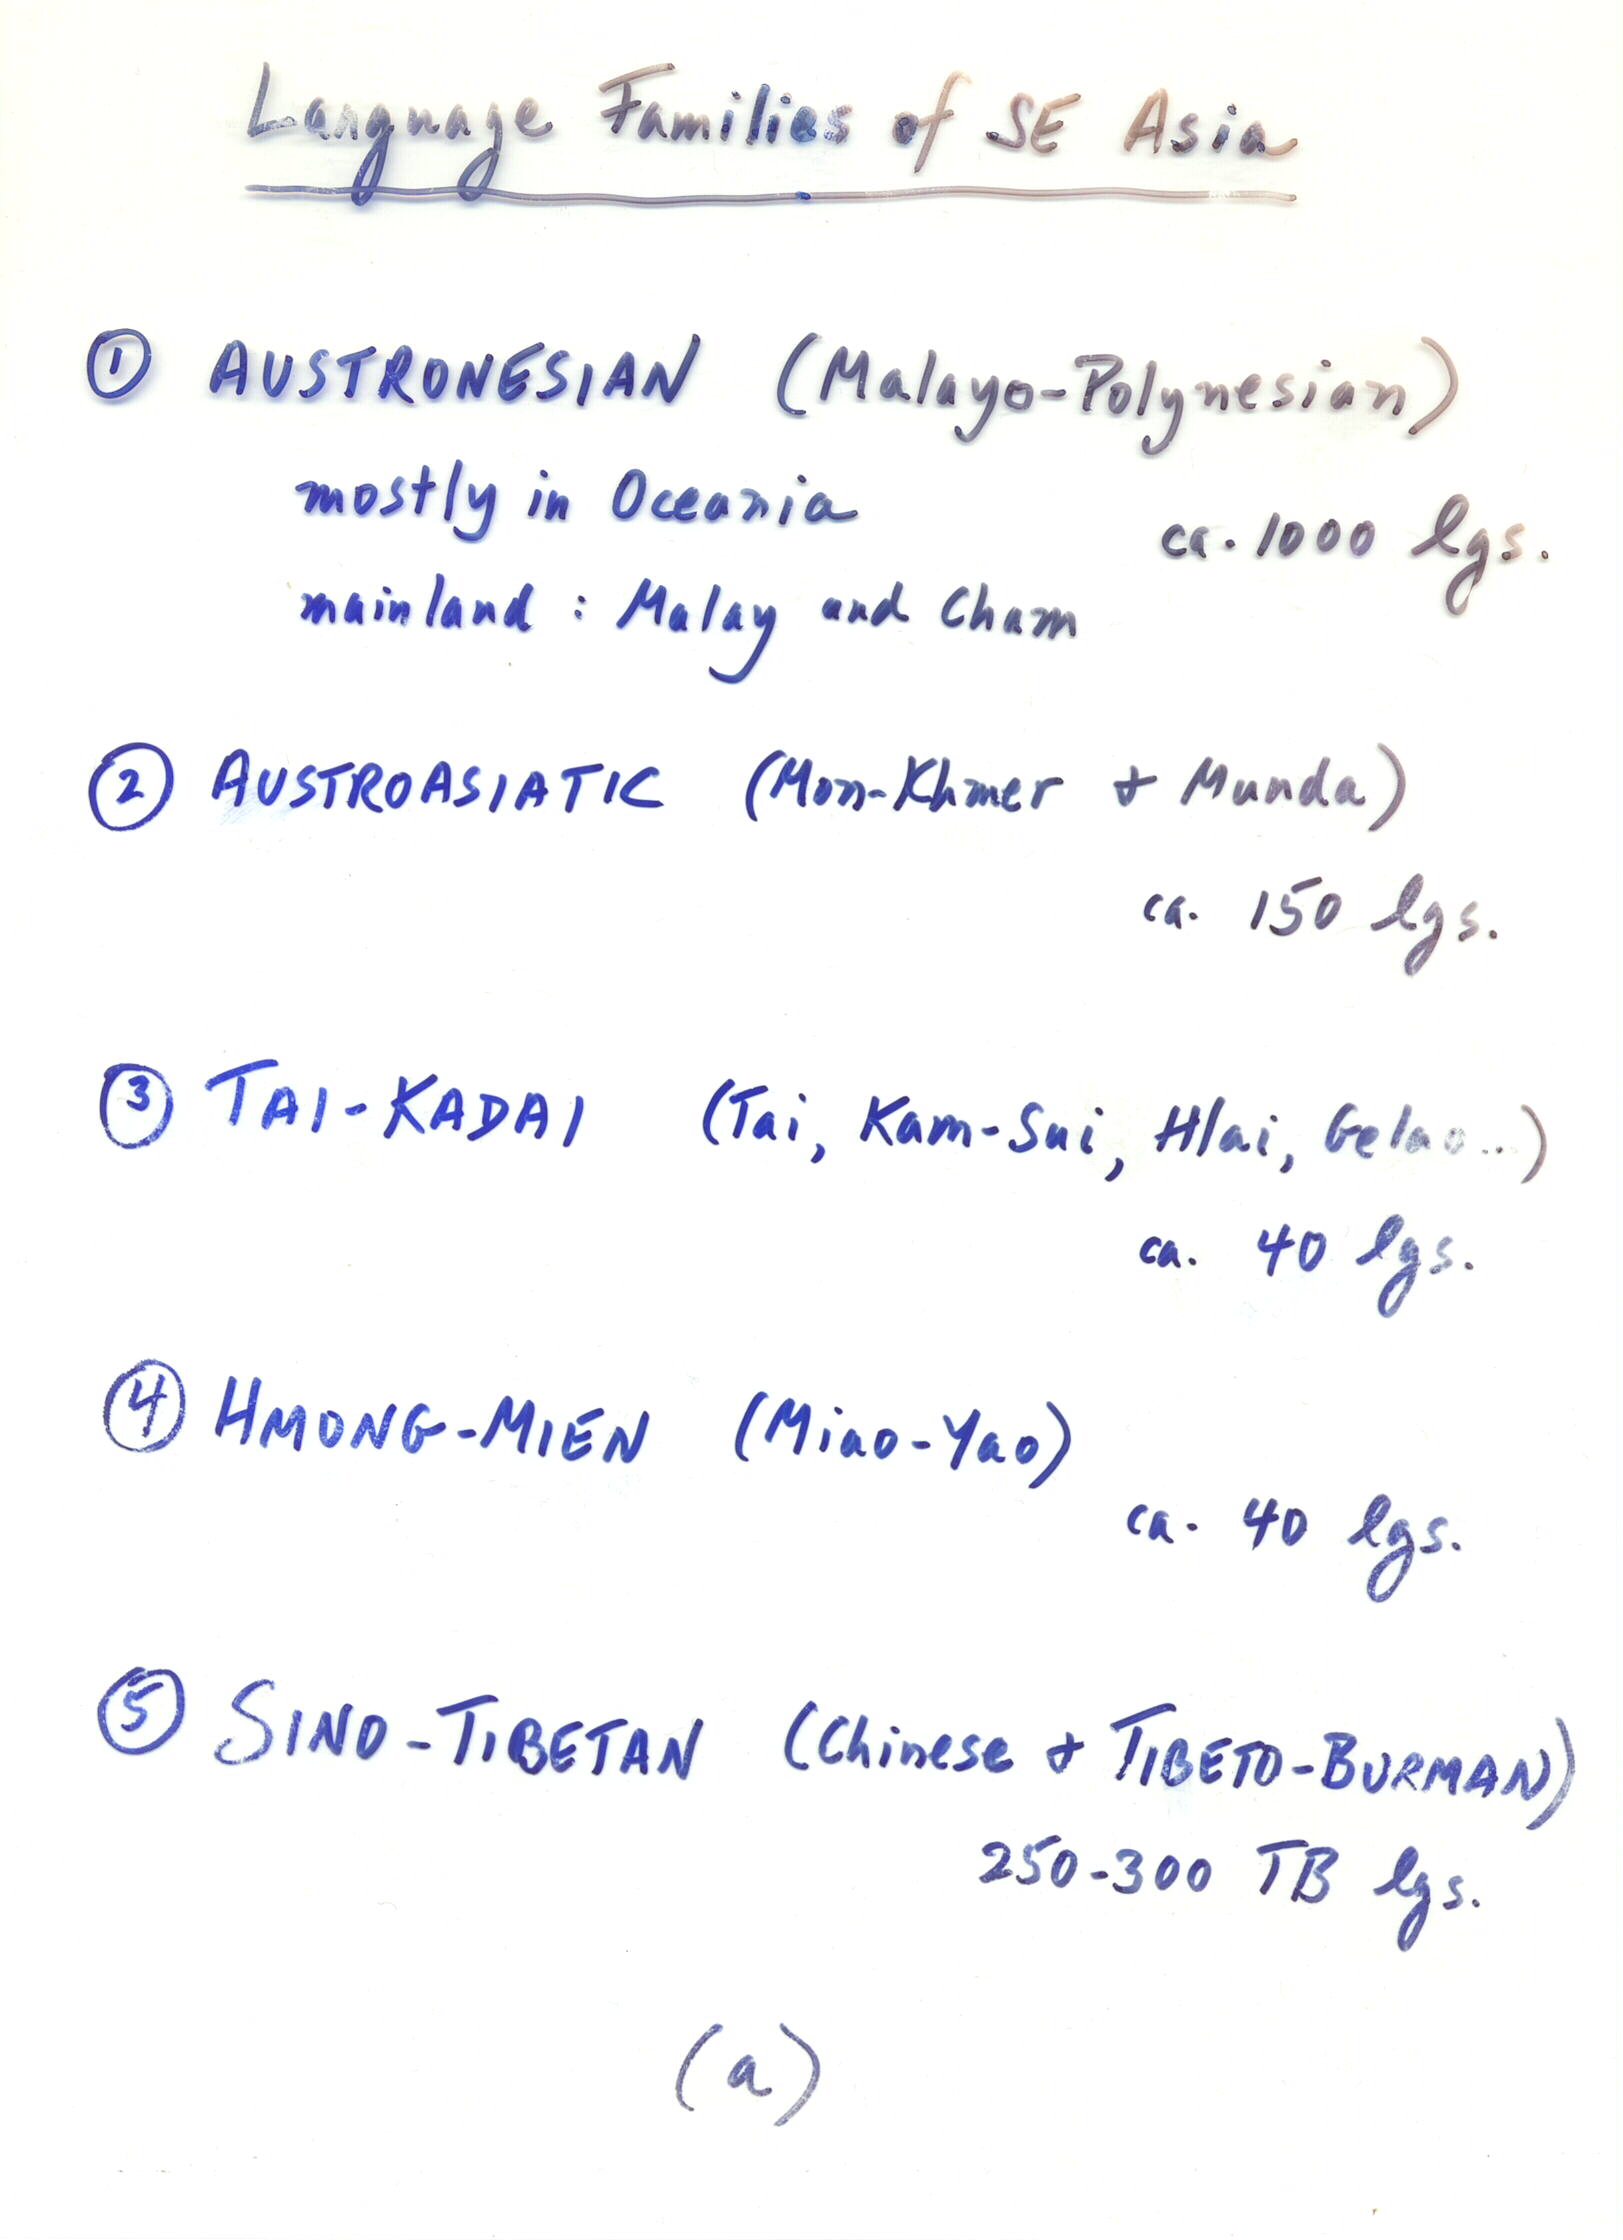 Language Families of SE Asia
① AUSTRONESIAN (Malayo-Polynesian)
mostly in Oceania
ca. 1000 lgs.
mainland : Malay and Cham
② AUSTROASIATIC (Mon-Khmer + Munda)
ca. 150 lgs.
③ TAI-KADAI (Tai, Kam-Sui, Hlai, Gelao...)
ca. 40 lgs.
④ HMONG-MIEN (Miao-Yao)
ca. 40 lgs.
⑤ SINO-TIBETAN (Chinese + TIBETO-BURMAN)
250-300 TB lgs.
(a)